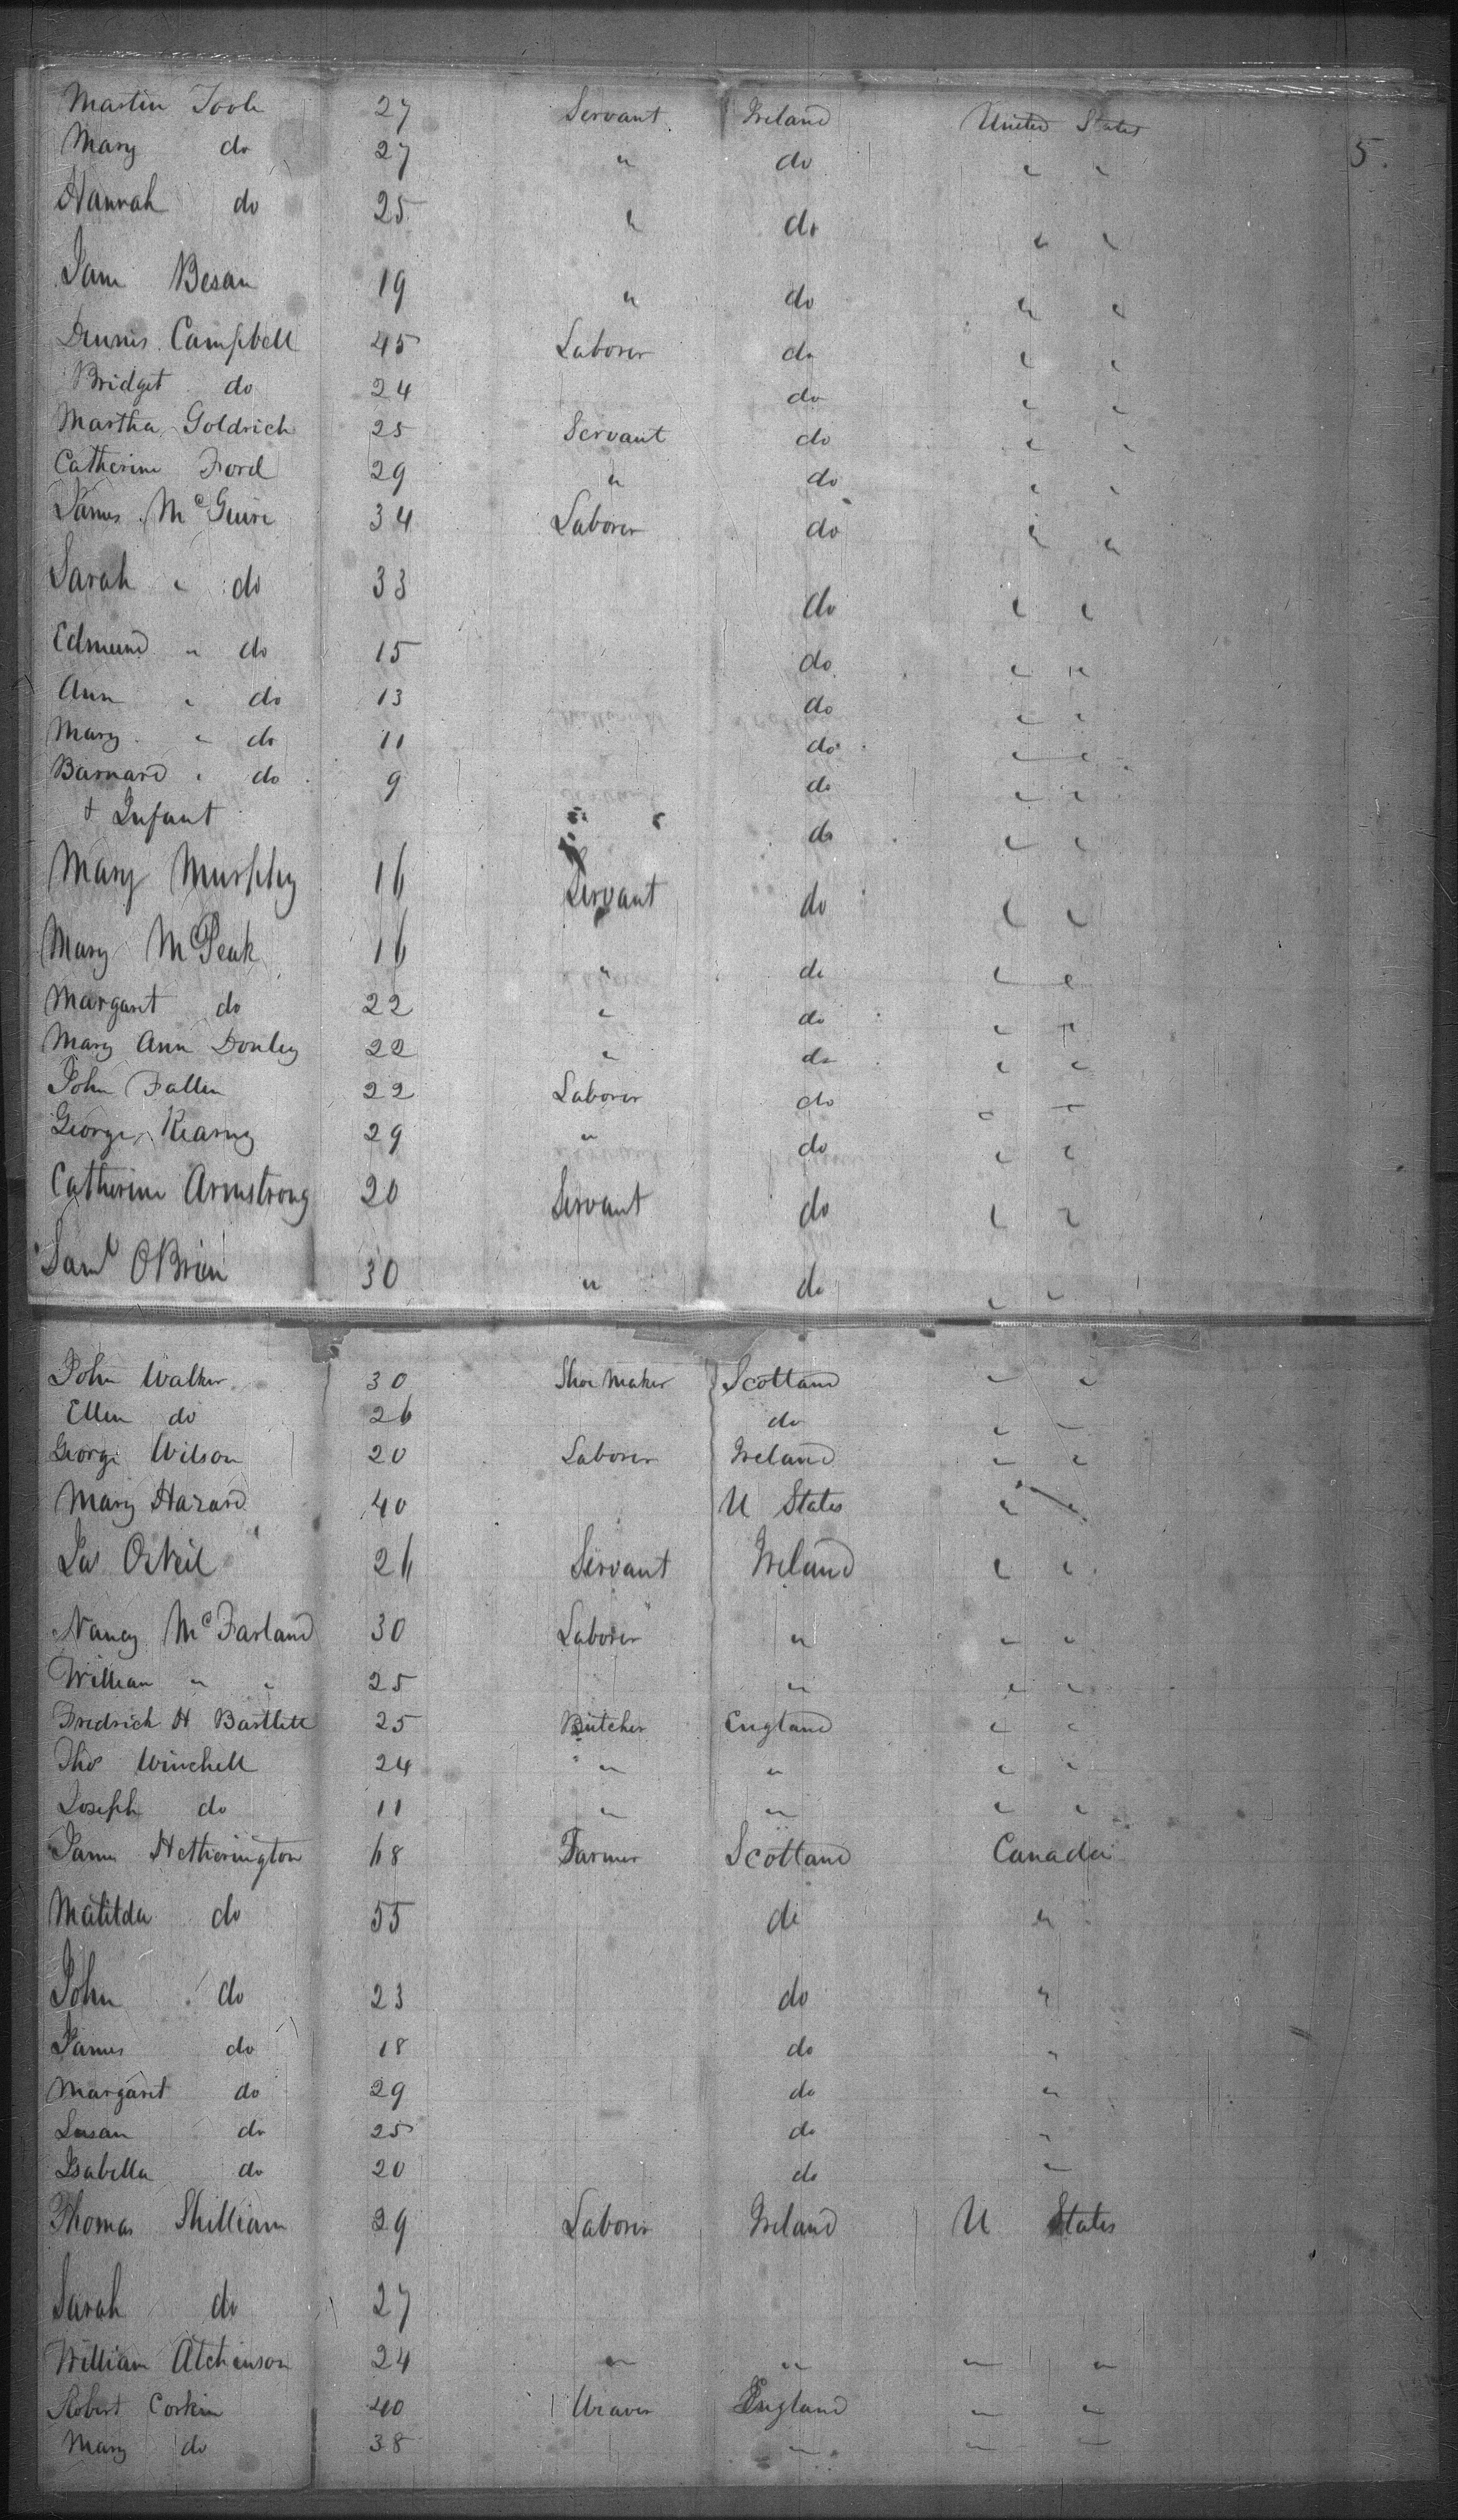 Martin Toole 27 Servant Ireland United States
Mary do 27 " do " " 5.
Hannah do 25 " do " "
Jane Besan 19 " do " "
Dennis Campbell 45 Laborer do " "
Bridget do 24 do " "
Martha Goldrich 25 Servant do " "
Catherine Ford 29 " do " "
James McGuire 34 Laborer do " "
Sarah " do 33 do " "
Edmund " do 15 do " "
Ann " do 13 do " "
Mary " do 11 do " "
Barnard " do 9 do " "
+ Infant do " "
Mary Murphy 16 Servant do " "
Mary McPeak 16 " do " "
Margaret do 22 " do " "
Mary Ann Donley 22 " do " "
John Fallen 22 Laborer do " "
George Kearny 29 " do " "
Catherine Armstrong 20 Servant do " "
Saml OBrien 30 " do " "
John Walker 30 Shoe Maker Scotland " "
Ellen do 26 do " "
George Wilson 20 Laborer Ireland " "
Mary Hazard 40 U States " "
Jas ONeil 26 Servant Ireland " "
Nancy McFarland 30 Laborer " " "
William " " 25 " " "
Fredrich H Bartlett 25 Butcher England " "
Thos Winchell 24 " " " "
Joseph do 11 " " " "
James Hetherington 68 Farmer Scotland Canada
Matilda do 55 do "
John do 23 do "
James do 18 do "
Margaret do 29 do "
Susan do 25 do "
Isabella do 20 do "
Thomas Shilliam 29 Laborer Ireland U States
Sarah do 27
William Atchinson 24 " " " "
Robert Corkin 40 Weaver England " "
Mary do 38 " " "